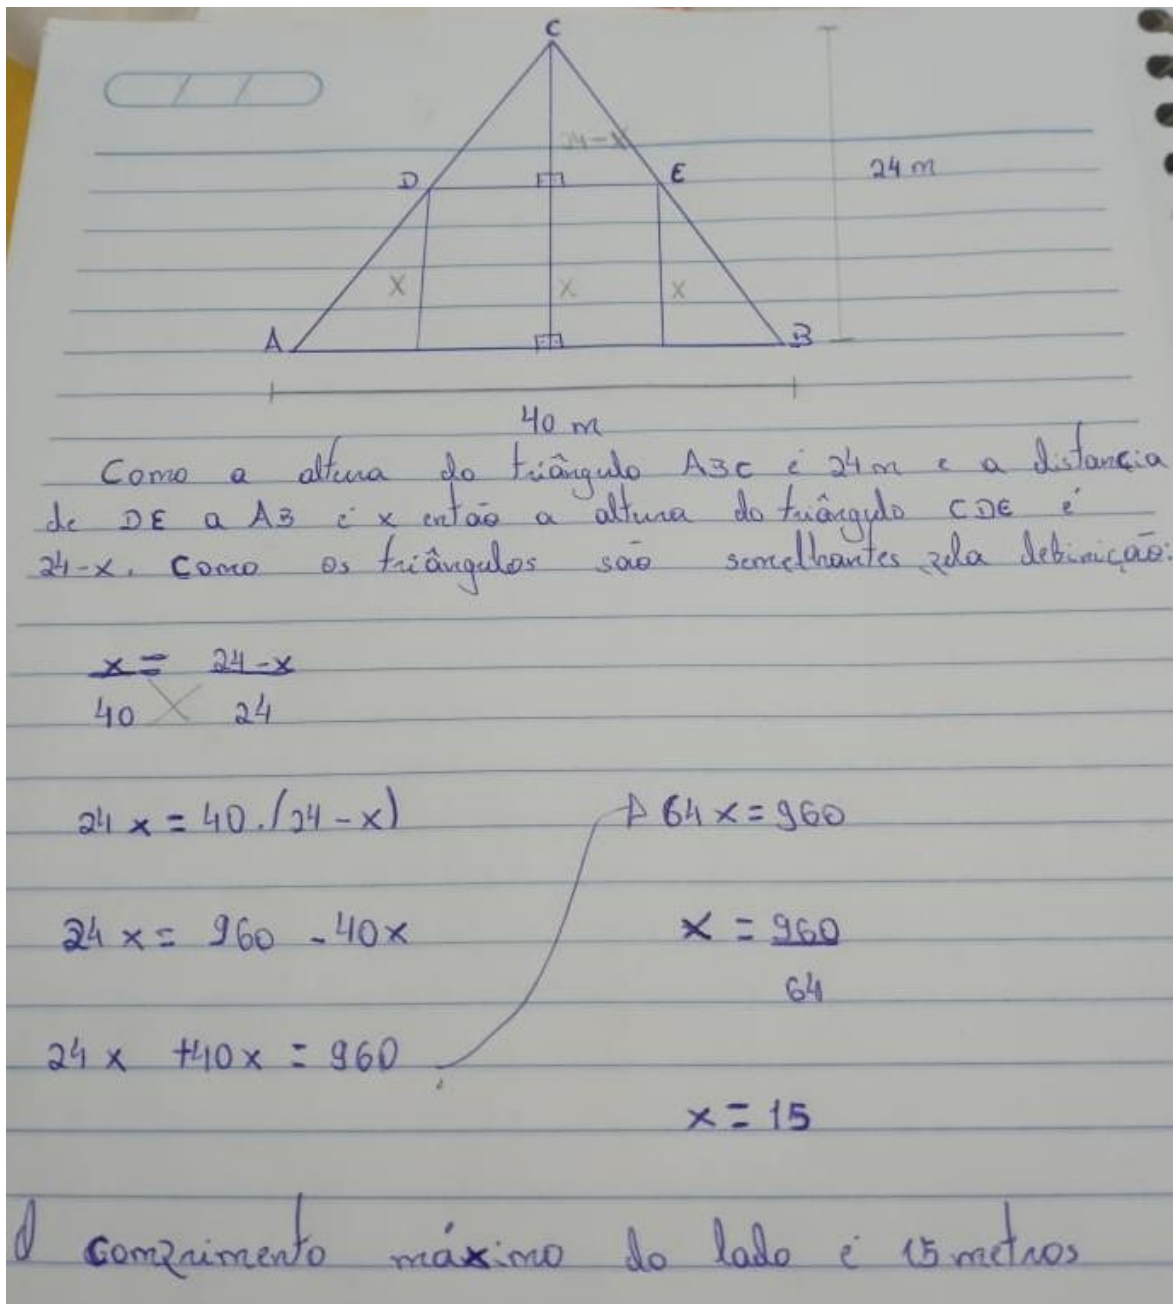 C
24-x
D
E
24 m
x
x
x
A
B
40 m
Como a altura do triângulo ABC é 24m e a distancia
de DE a AB é x então a altura do triângulo CDE é
24-x. Como os triângulos são semelhantes pela definição:
x = 24-x
40 24
24x = 40.(24-x)
24x = 960 - 40x
24x +40x = 960
64x = 960
x = 960
64
x = 15
O comprimento máximo do lado é 15 metros